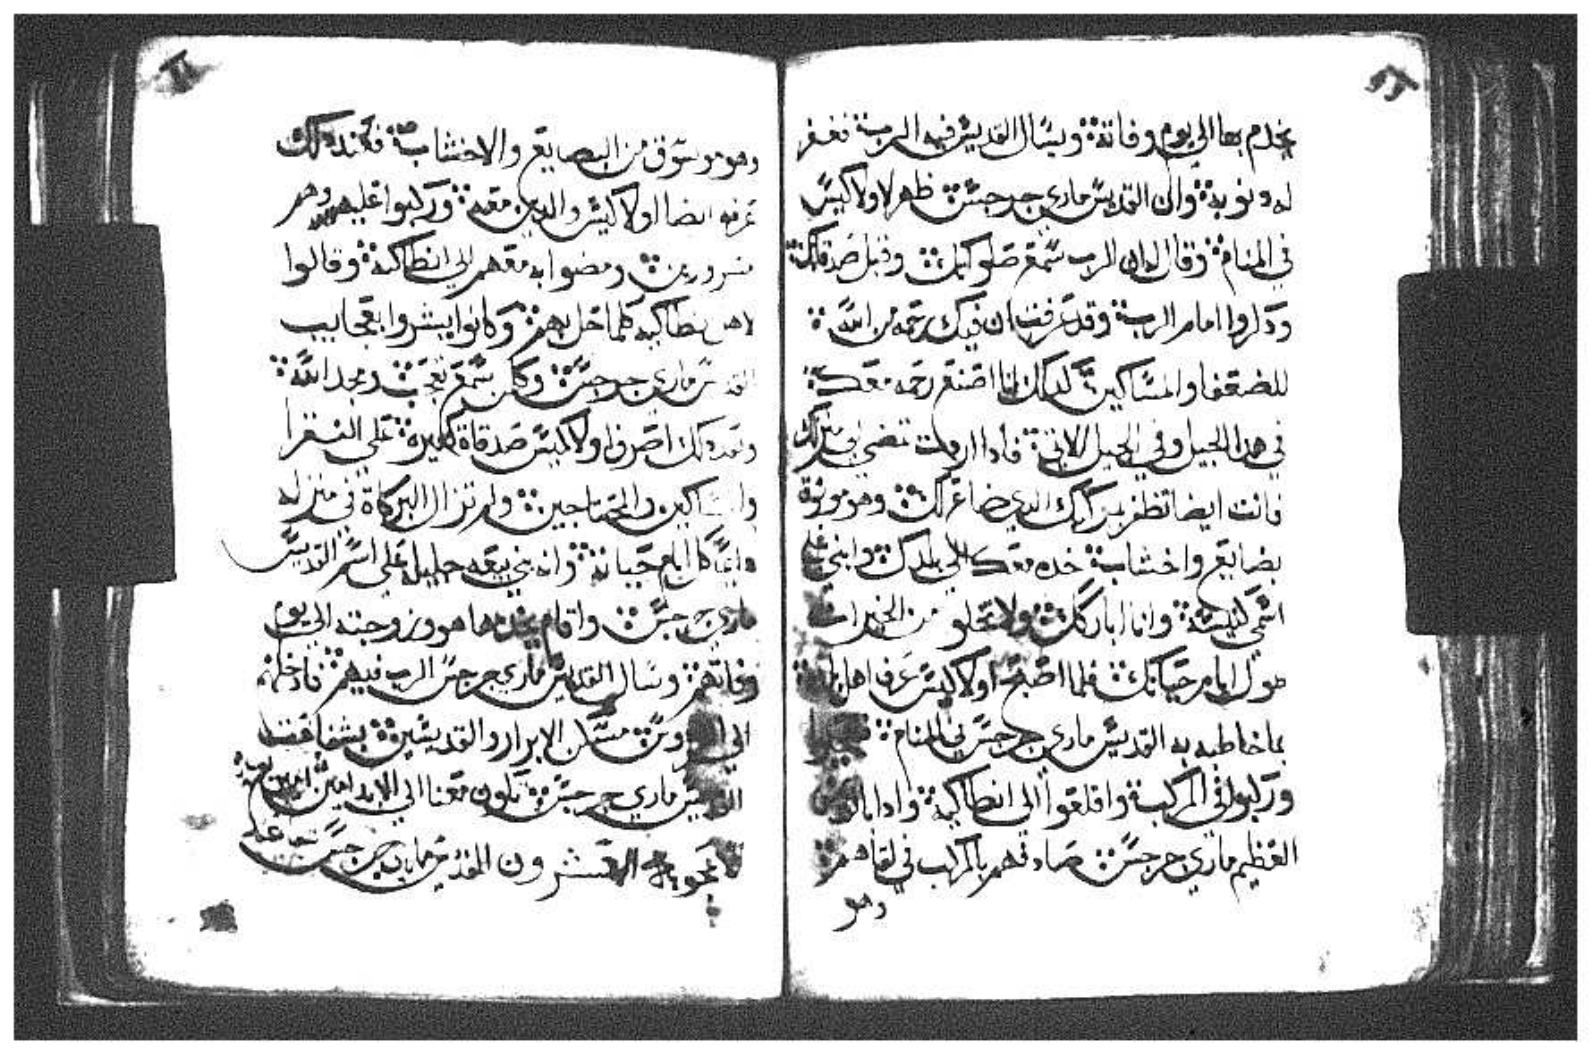 يخدم بها الى يوم وفاته ويسال القديس فيه الرب فغفر
له دنوبه وان القديس ماري جرجس ظهر لاولاكيس
في المنام وقال له ان الرب سمع صلواتك وقبل صدقاتك
ودكروا امام الرب وقد عرفت ان فيك رحمه من الله
للضعفا والمساكين كدلك انا اصنع رحمه معك
في هدا الجيل وفي الجيل الاتي فادا اردت تمضي الى منزلك
فانت ايضا تظفر بمركبك الدي ضاع لك وهو موسوق
بضايع واخشاب خده معك الى بلدك وابني على
اسمي كنيسه وانا اباركك ولا تخلو من الخيرات
طول ايام حياتك فلما اصبح اولاكيس عرف اهل
بما خاطبه به القديس ماري جرجس في المنام
وركبوا في المركب واقلعوا الى انطاكيه وادا
العظيم ماري جرجس صادفهم بالمركب في لقاهم
وهو
وهو موسوق من البضايع والاخشاب فعند دلك
عرفه ايضا اولاكيس والدين معه وركبوا عليه وهم
مسرورين ومضوا به معهم الى انطاكيه وقالوا
لاهل انطاكيه كلما حل بهم وكانوا يبشروا بعجايب
القديس ماري جرجس وكل من سمع تعجب ومجد الله
وبعد دلك اصرف اولاكيس صدقاة كتيره على الفقرا
والمساكين والمحتاجين ولم تزال البركاة في منزله
دايما كل ايام حياته وانه بنى بيعه جليله على اسم القديس
ماري جرجس واقام يخدمها هو وزوجته الى يوم
وفاتهم وسال القديس ماري جرجس الرب فيهم فادخلهم
الى الفردوس مسكن الابرار والقديسين بشفاعة
القديس ماري جرجس تكون معنا الى الابد امين امين
الاعجوبة العشرون للقديس ماري جرجس